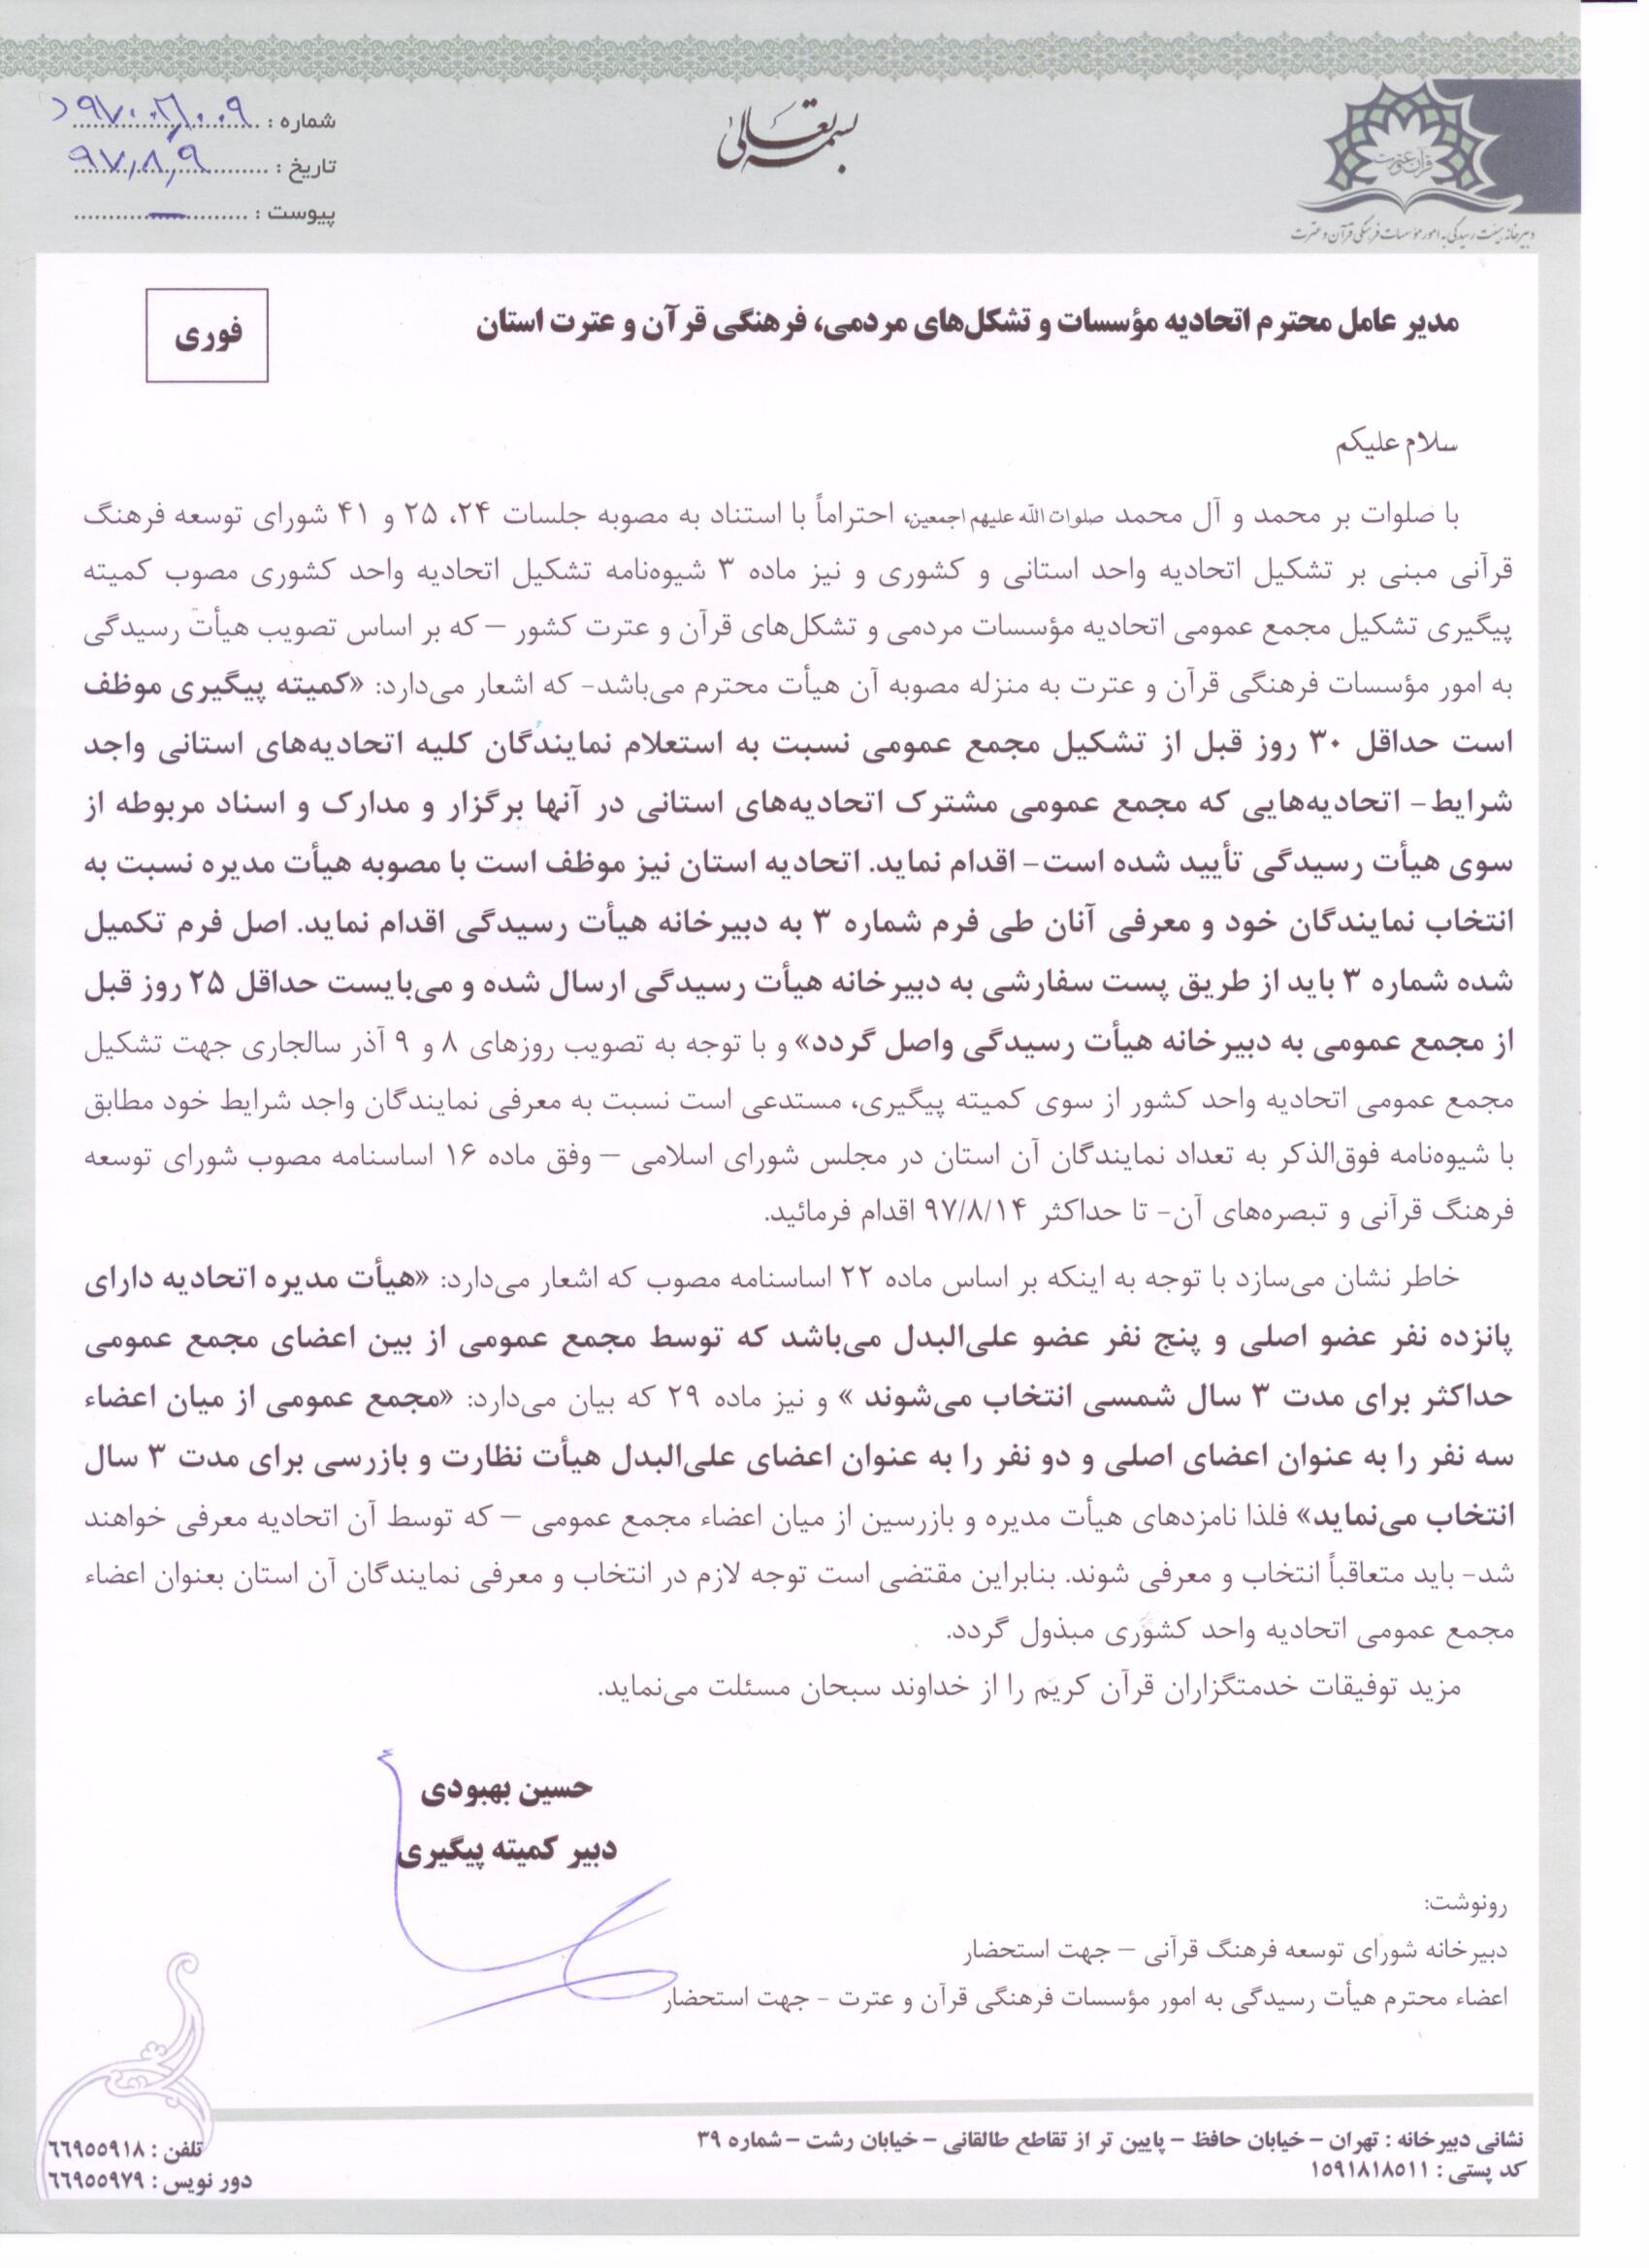 بسمه تعالی
شماره :
تاریخ : ۹۷٫۸٫۹
پیوست : —
قرآن و عترت
دبیرخانه هیئت رسیدگی به امور مؤسسات فرهنگی قرآن و عترت
مدیر عامل محترم اتحادیه مؤسسات و تشکل‌های مردمی، فرهنگی قرآن و عترت استان
فوری
سلام علیکم
با صلوات بر محمد و آل محمد صلوات الله علیهم اجمعین، احتراماً با استناد به مصوبه جلسات ۲۴، ۲۵ و ۴۱ شورای توسعه فرهنگ
قرآنی مبنی بر تشکیل اتحادیه واحد استانی و کشوری و نیز ماده ۳ شیوه‌نامه تشکیل اتحادیه واحد کشوری مصوب کمیته
پیگیری تشکیل مجمع عمومی اتحادیه مؤسسات مردمی و تشکل‌های قرآن و عترت کشور – که بر اساس تصویب هیأت رسیدگی
به امور مؤسسات فرهنگی قرآن و عترت به منزله مصوبه آن هیأت محترم می‌باشد- که اشعار می‌دارد: «کمیته پیگیری موظف
است حداقل ۳۰ روز قبل از تشکیل مجمع عمومی نسبت به استعلام نمایندگان کلیه اتحادیه‌های استانی واجد
شرایط- اتحادیه‌هایی که مجمع عمومی مشترک اتحادیه‌های استانی در آنها برگزار و مدارک و اسناد مربوطه از
سوی هیأت رسیدگی تأیید شده است- اقدام نماید. اتحادیه استان نیز موظف است با مصوبه هیأت مدیره نسبت به
انتخاب نمایندگان خود و معرفی آنان طی فرم شماره ۳ به دبیرخانه هیأت رسیدگی اقدام نماید. اصل فرم تکمیل
شده شماره ۳ باید از طریق پست سفارشی به دبیرخانه هیأت رسیدگی ارسال شده و می‌بایست حداقل ۲۵ روز قبل
از مجمع عمومی به دبیرخانه هیأت رسیدگی واصل گردد» و با توجه به تصویب روزهای ۸ و ۹ آذر سالجاری جهت تشکیل
مجمع عمومی اتحادیه واحد کشور از سوی کمیته پیگیری، مستدعی است نسبت به معرفی نمایندگان واجد شرایط خود مطابق
با شیوه‌نامه فوق‌الذکر به تعداد نمایندگان آن استان در مجلس شورای اسلامی – وفق ماده ۱۶ اساسنامه مصوب شورای توسعه
فرهنگ قرآنی و تبصره‌های آن- تا حداکثر ۹۷/۸/۱۴ اقدام فرمائید.
خاطر نشان می‌سازد با توجه به اینکه بر اساس ماده ۲۲ اساسنامه مصوب که اشعار می‌دارد: «هیأت مدیره اتحادیه دارای
پانزده نفر عضو اصلی و پنج نفر عضو علی‌البدل می‌باشد که توسط مجمع عمومی از بین اعضای مجمع عمومی
حداکثر برای مدت ۳ سال شمسی انتخاب می‌شوند » و نیز ماده ۲۹ که بیان می‌دارد: «مجمع عمومی از میان اعضاء
سه نفر را به عنوان اعضای اصلی و دو نفر را به عنوان اعضای علی‌البدل هیأت نظارت و بازرسی برای مدت ۳ سال
انتخاب می‌نماید» فلذا نامزدهای هیأت مدیره و بازرسین از میان اعضاء مجمع عمومی – که توسط آن اتحادیه معرفی خواهند
شد- باید متعاقباً انتخاب و معرفی شوند. بنابراین مقتضی است توجه لازم در انتخاب و معرفی نمایندگان آن استان بعنوان اعضاء
مجمع عمومی اتحادیه واحد کشوری مبذول گردد.
مزید توفیقات خدمتگزاران قرآن کریم را از خداوند سبحان مسئلت می‌نماید.
حسین بهبودی
دبیر کمیته پیگیری
رونوشت:
دبیرخانه شورای توسعه فرهنگ قرآنی – جهت استحضار
اعضاء محترم هیأت رسیدگی به امور مؤسسات فرهنگی قرآن و عترت - جهت استحضار
نشانی دبیرخانه : تهران – خیابان حافظ – پایین تر از تقاطع طالقانی – خیابان رشت – شماره ۳۹
کد پستی : ۱۵۹۱۸۱۸۵۱۱
تلفن : ۶۶۹۵۵۹۱۸
دور نویس : ۶۶۹۵۵۹۷۹